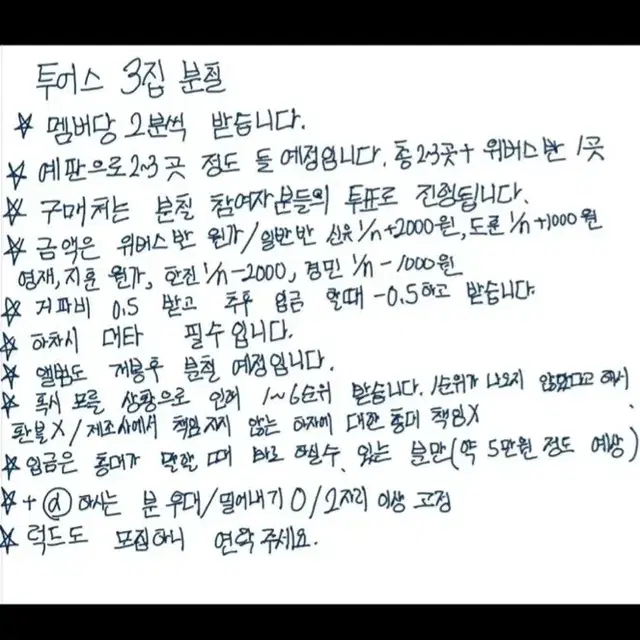 투어스 3집 분철
☆ 멤버당 2분씩 받습니다.
☆ 예판으로 2~3곳 정도 들 예정입니다. 총 2~3곳 + 위버스반 1곳
☆ 구매처는 분철 참여자분들의 투표로 진행됩니다.
☆ 금액은 위버스반 원가/일반반 신유 1/n+2000원, 도훈 1/n+1000원
영재, 지훈 원가, 한진 1/n-2000, 경민 1/n-1000원
☆ 거파비 0.5 받고 추후 입금 할때 -0.5하고 받습니다.
☆ 하차시 대타 필수입니다.
☆ 앨범도 개봉후 분철 예정입니다.
☆ 혹시 모를 상황으로 인해 1~6순위 받습니다. 1순위가 나오지 않았다고 해서
환불X / 제조사에서 책임지지 않는 하자에 대한 총대 책임X
☆ 입금은 총대가 말한 때 바로 하실수 있는 분만 (약 5만원 정도 예상)
☆ + ⓐ 하시는 분 우대/밀어내기 O/2자리 이상 고정
☆ 럭드도 모집하니 연락주세요.